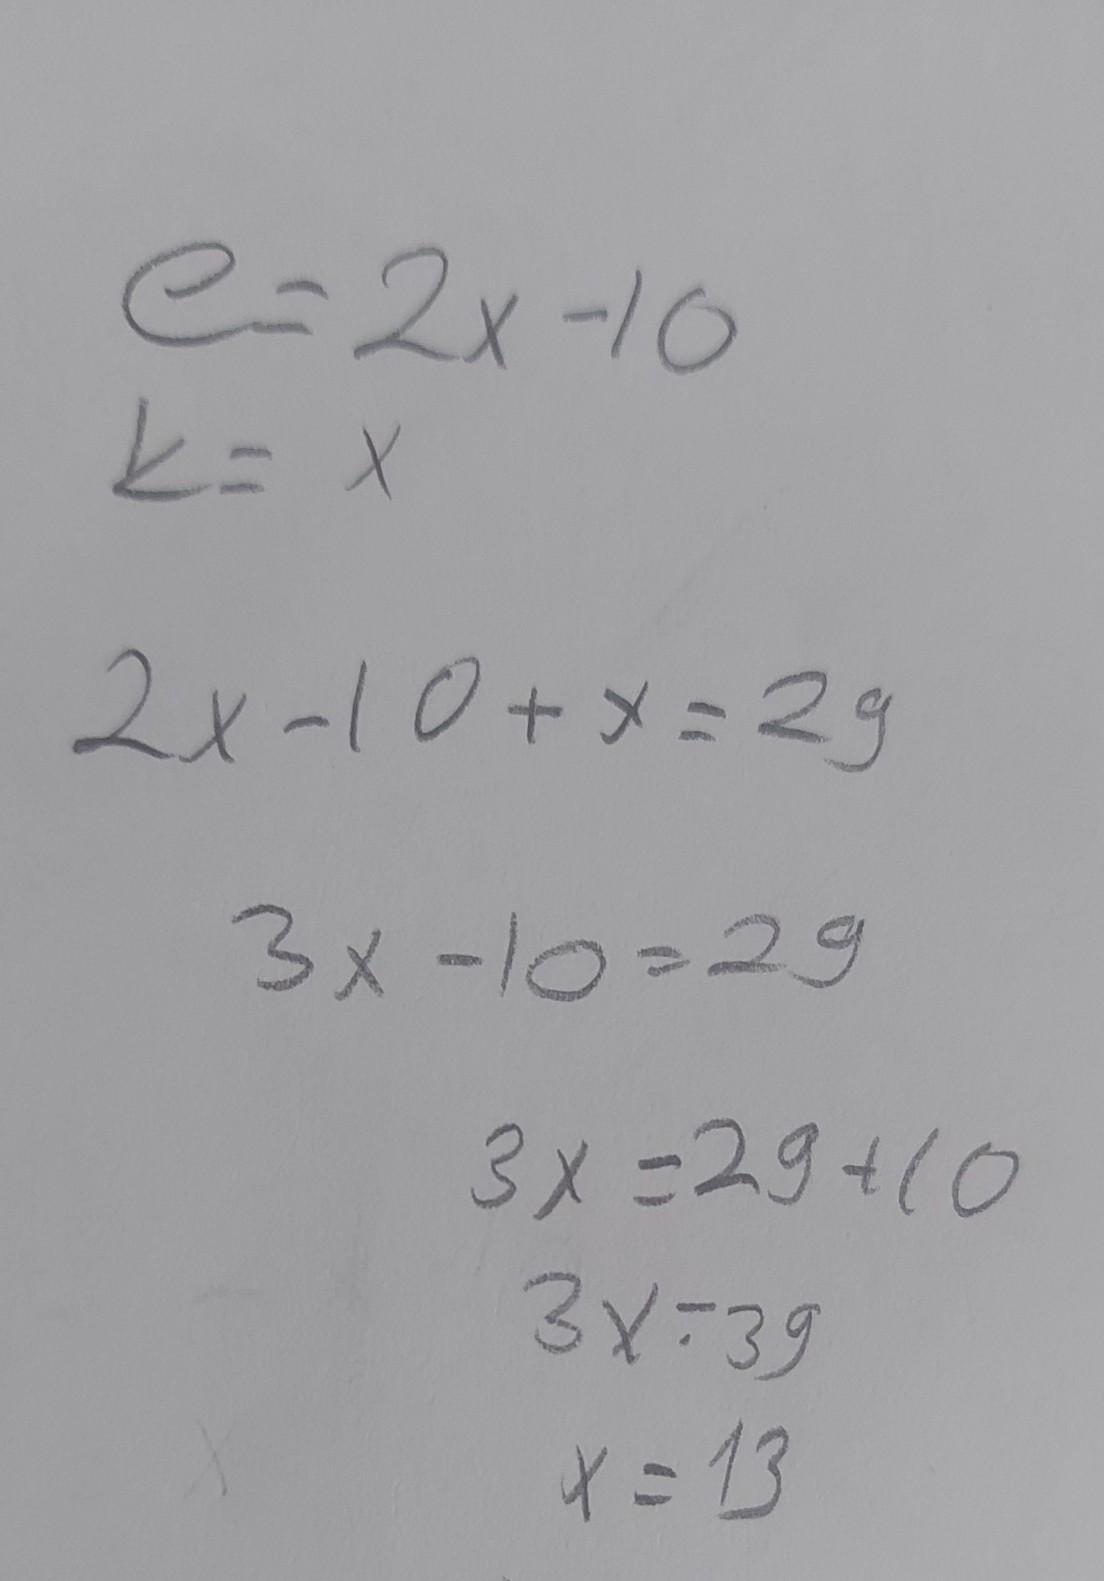 e=2x-10
k=x
2x-10+x=29
3x-10=29
3x=29+10
3x=39
x=13